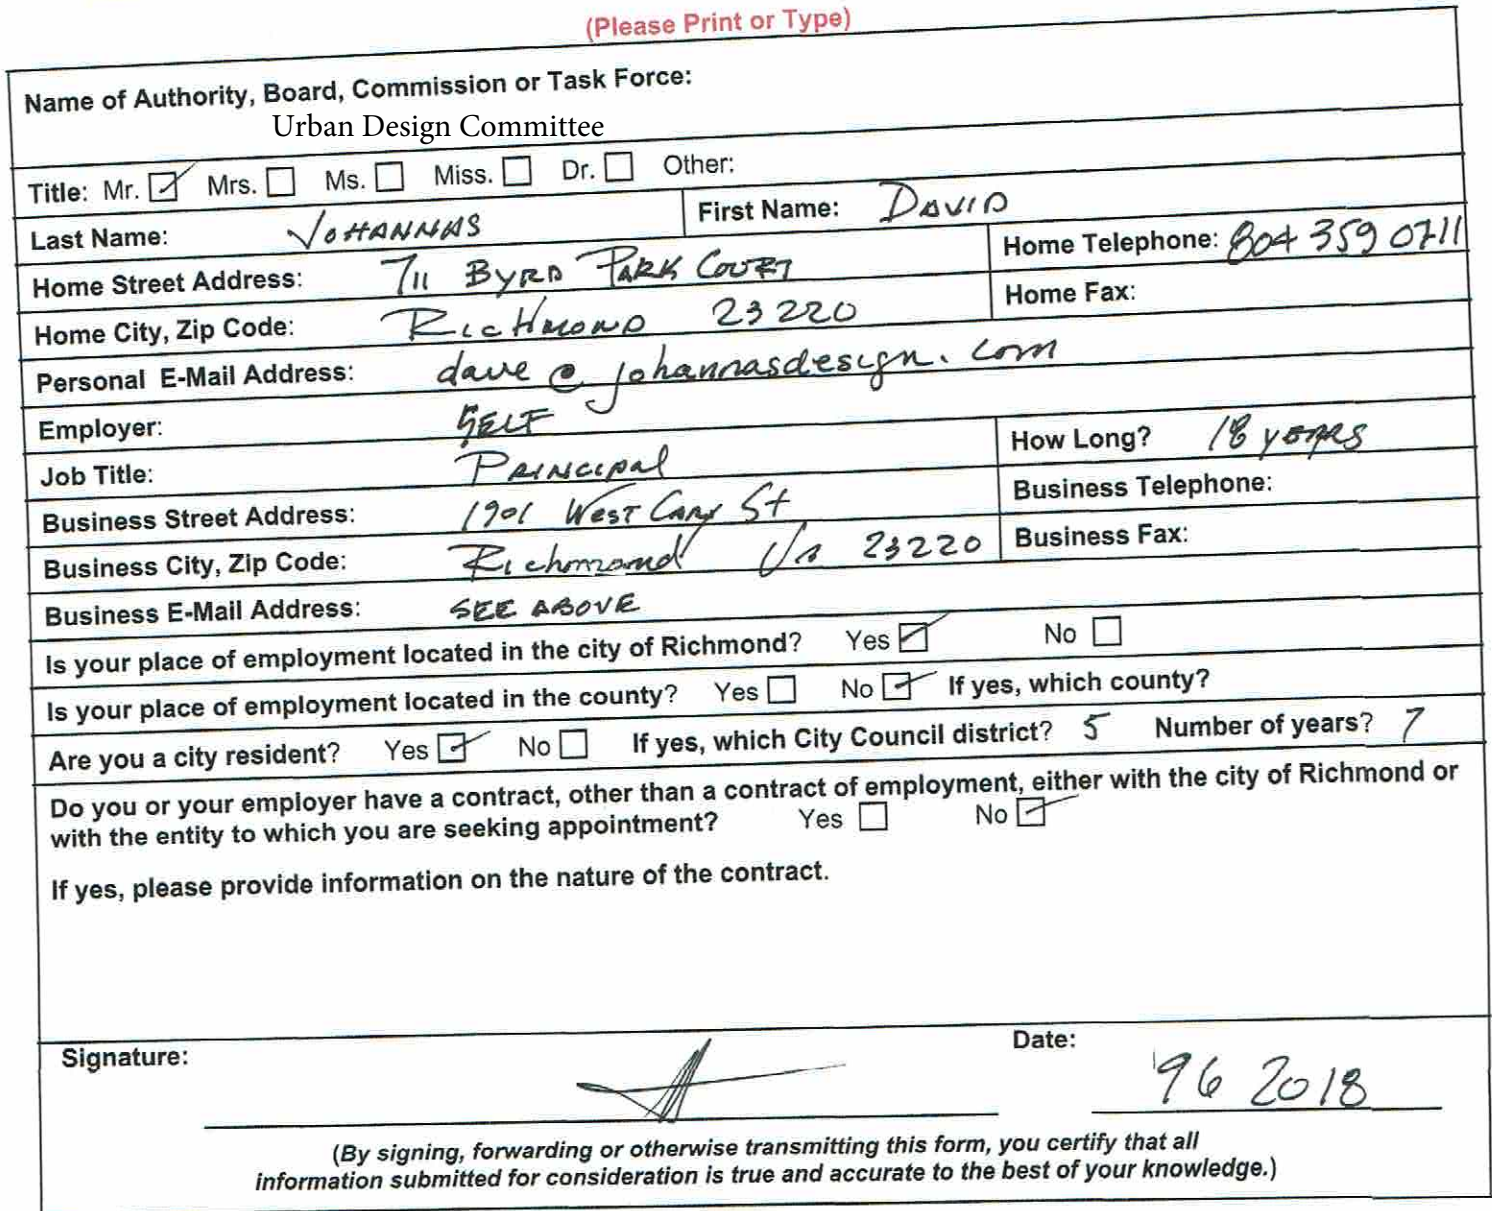 (Please Print or Type)
Name of Authority, Board, Commission or Task Force:
Urban Design Committee
Title: Mr. ☑ Mrs. ☐ Ms. ☐ Miss. ☐ Dr. ☐ Other:
Last Name: JOHANNAS First Name: DAVID
Home Street Address: 711 BYRD PARK COURT Home Telephone: 804 359 0711
Home City, Zip Code: RICHMOND 23220 Home Fax:
Personal E-Mail Address: dave@johannasdesign.com
Employer: SELF
Job Title: PRINCIPAL How Long? 18 YEARS
Business Street Address: 1901 WEST CARY St Business Telephone:
Business City, Zip Code: Richmond Va 23220 Business Fax:
Business E-Mail Address: SEE ABOVE
Is your place of employment located in the city of Richmond? Yes ☑ No ☐
Is your place of employment located in the county? Yes ☐ No ☑ If yes, which county?
Are you a city resident? Yes ☑ No ☐ If yes, which City Council district? 5 Number of years? 7
Do you or your employer have a contract, other than a contract of employment, either with the city of Richmond or
with the entity to which you are seeking appointment? Yes ☐ No ☑
If yes, please provide information on the nature of the contract.
Signature: Date: 2018
(By signing, forwarding or otherwise transmitting this form, you certify that all
information submitted for consideration is true and accurate to the best of your knowledge.)